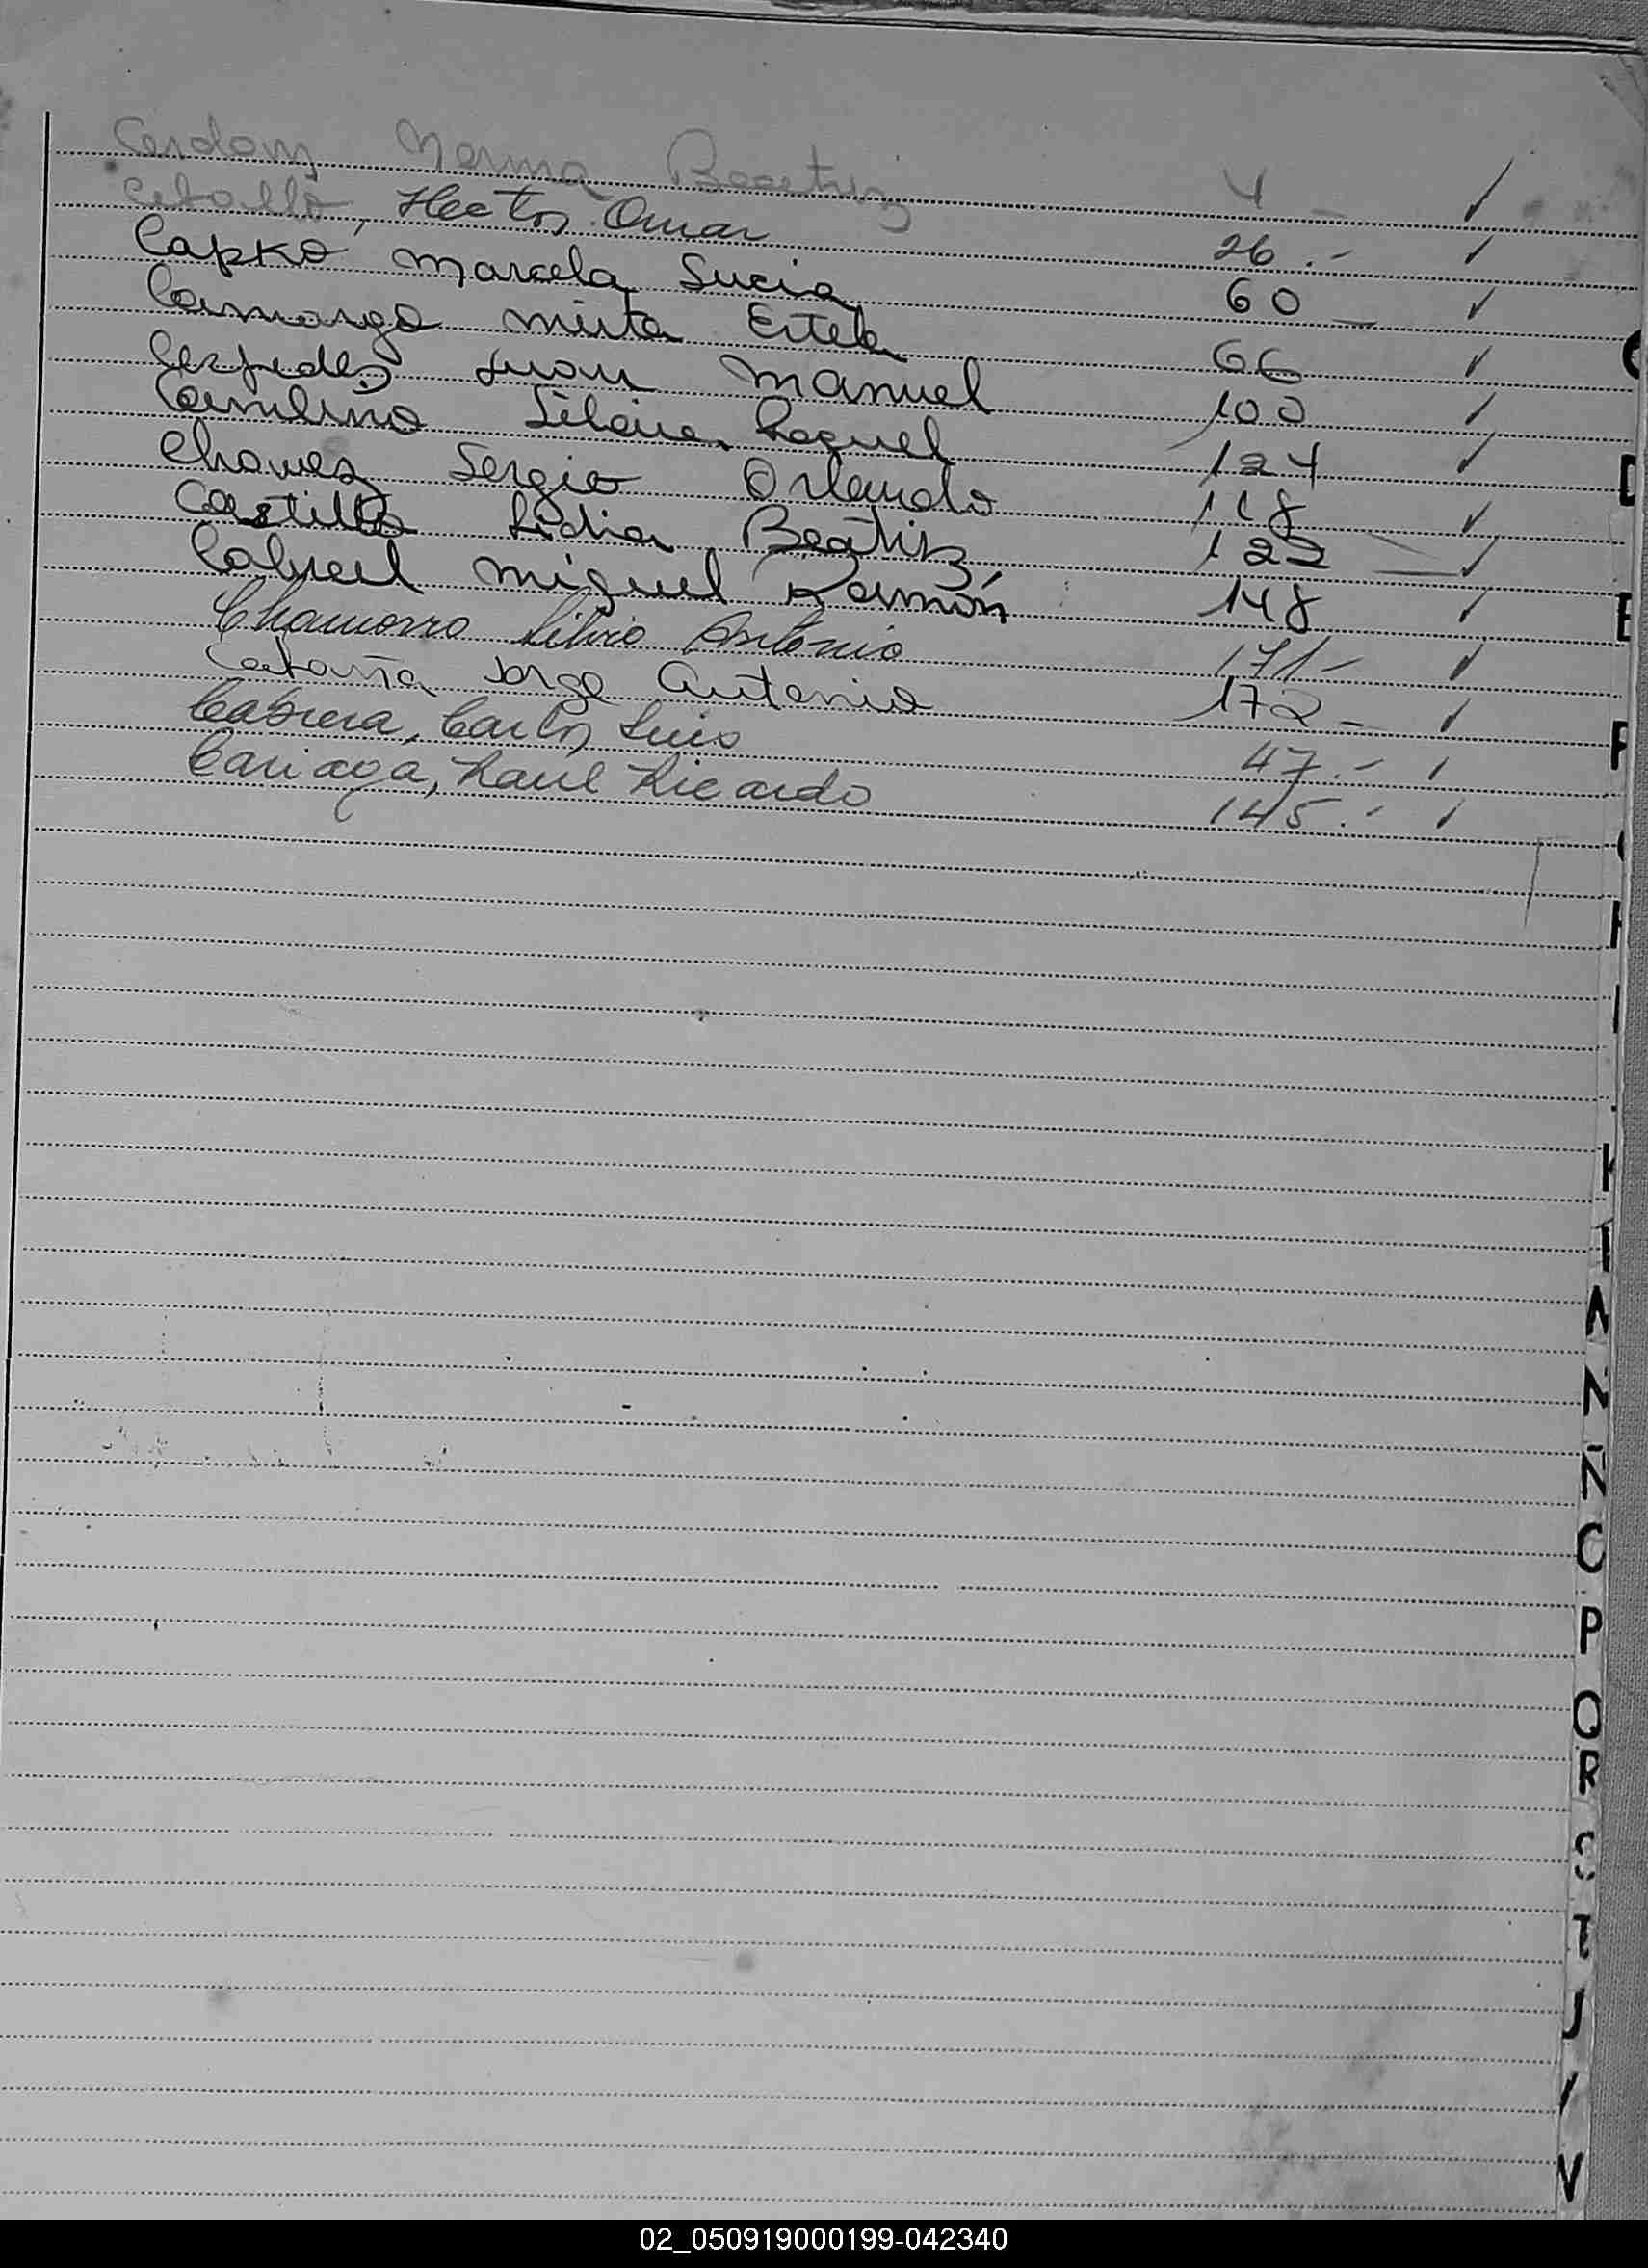 Cardozo Norma Beatriz 4 - ✓
Ceballo, Hector Omar 26.- ✓
Capko Marcela Lucia 60 - ✓
Camargo Mirta Estela 66 ✓
Cespedes Juan Manuel 100 ✓
Silvia Raquel 124 ✓
Chavez Sergio Orlando 118 ✓
Castillo Lidia Beatriz 122 - ✓
Cabrel Miguel Ramón 148 ✓
Chamorro Silvio Antonio 171- ✓
Cataña Jorge Antonio 172- ✓
Cabrera, Carlos Luis 47.- ✓
Cariaga, Raul Ricardo 145.- ✓
N
Ñ
P
Q
R
S
T
V
02_050919000199-042340